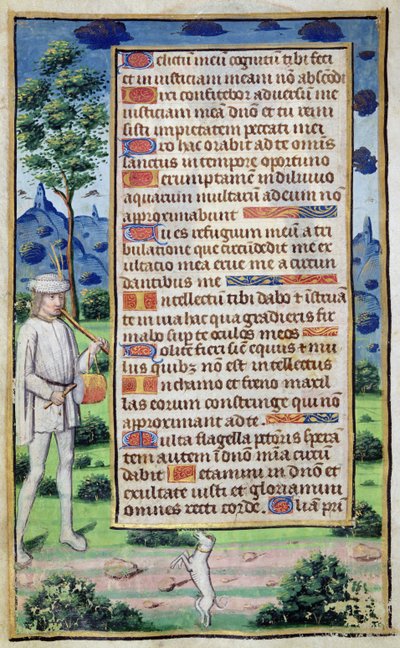 Delictum meū cognitum tibi feci
et in iusticiam meam nō abscōdi
Dixi confitebor aduersū me
iusticiam meā dnō et tu remi
sisti impietatem peccati mei
Pro hac orabit ad te omīs
sanctus in tempore oportuno
Verumptamē in diluuio
aquarum multarū ad eum nō
approximabunt
Tu es refugium meū a tri
bulatione que circūdedit me ex
ultatio mea erue me a circun
dantibus me
Intellectū tibi dabo et īstruā
te in uia hac qua gradieris fir
mabo sup te oculos meos
Nolite fieri sic equus et mu
lus quibz nō est intellectus
In chamo et freno maxil
las eorum constringe qui nō
approximant ad te
Multa flagella pctoris spera
tem autem ī dnō mīa circū
dabit Letamini in dnō et
exultate iusti et gloriamini
omnes recti corde. Glīa prī